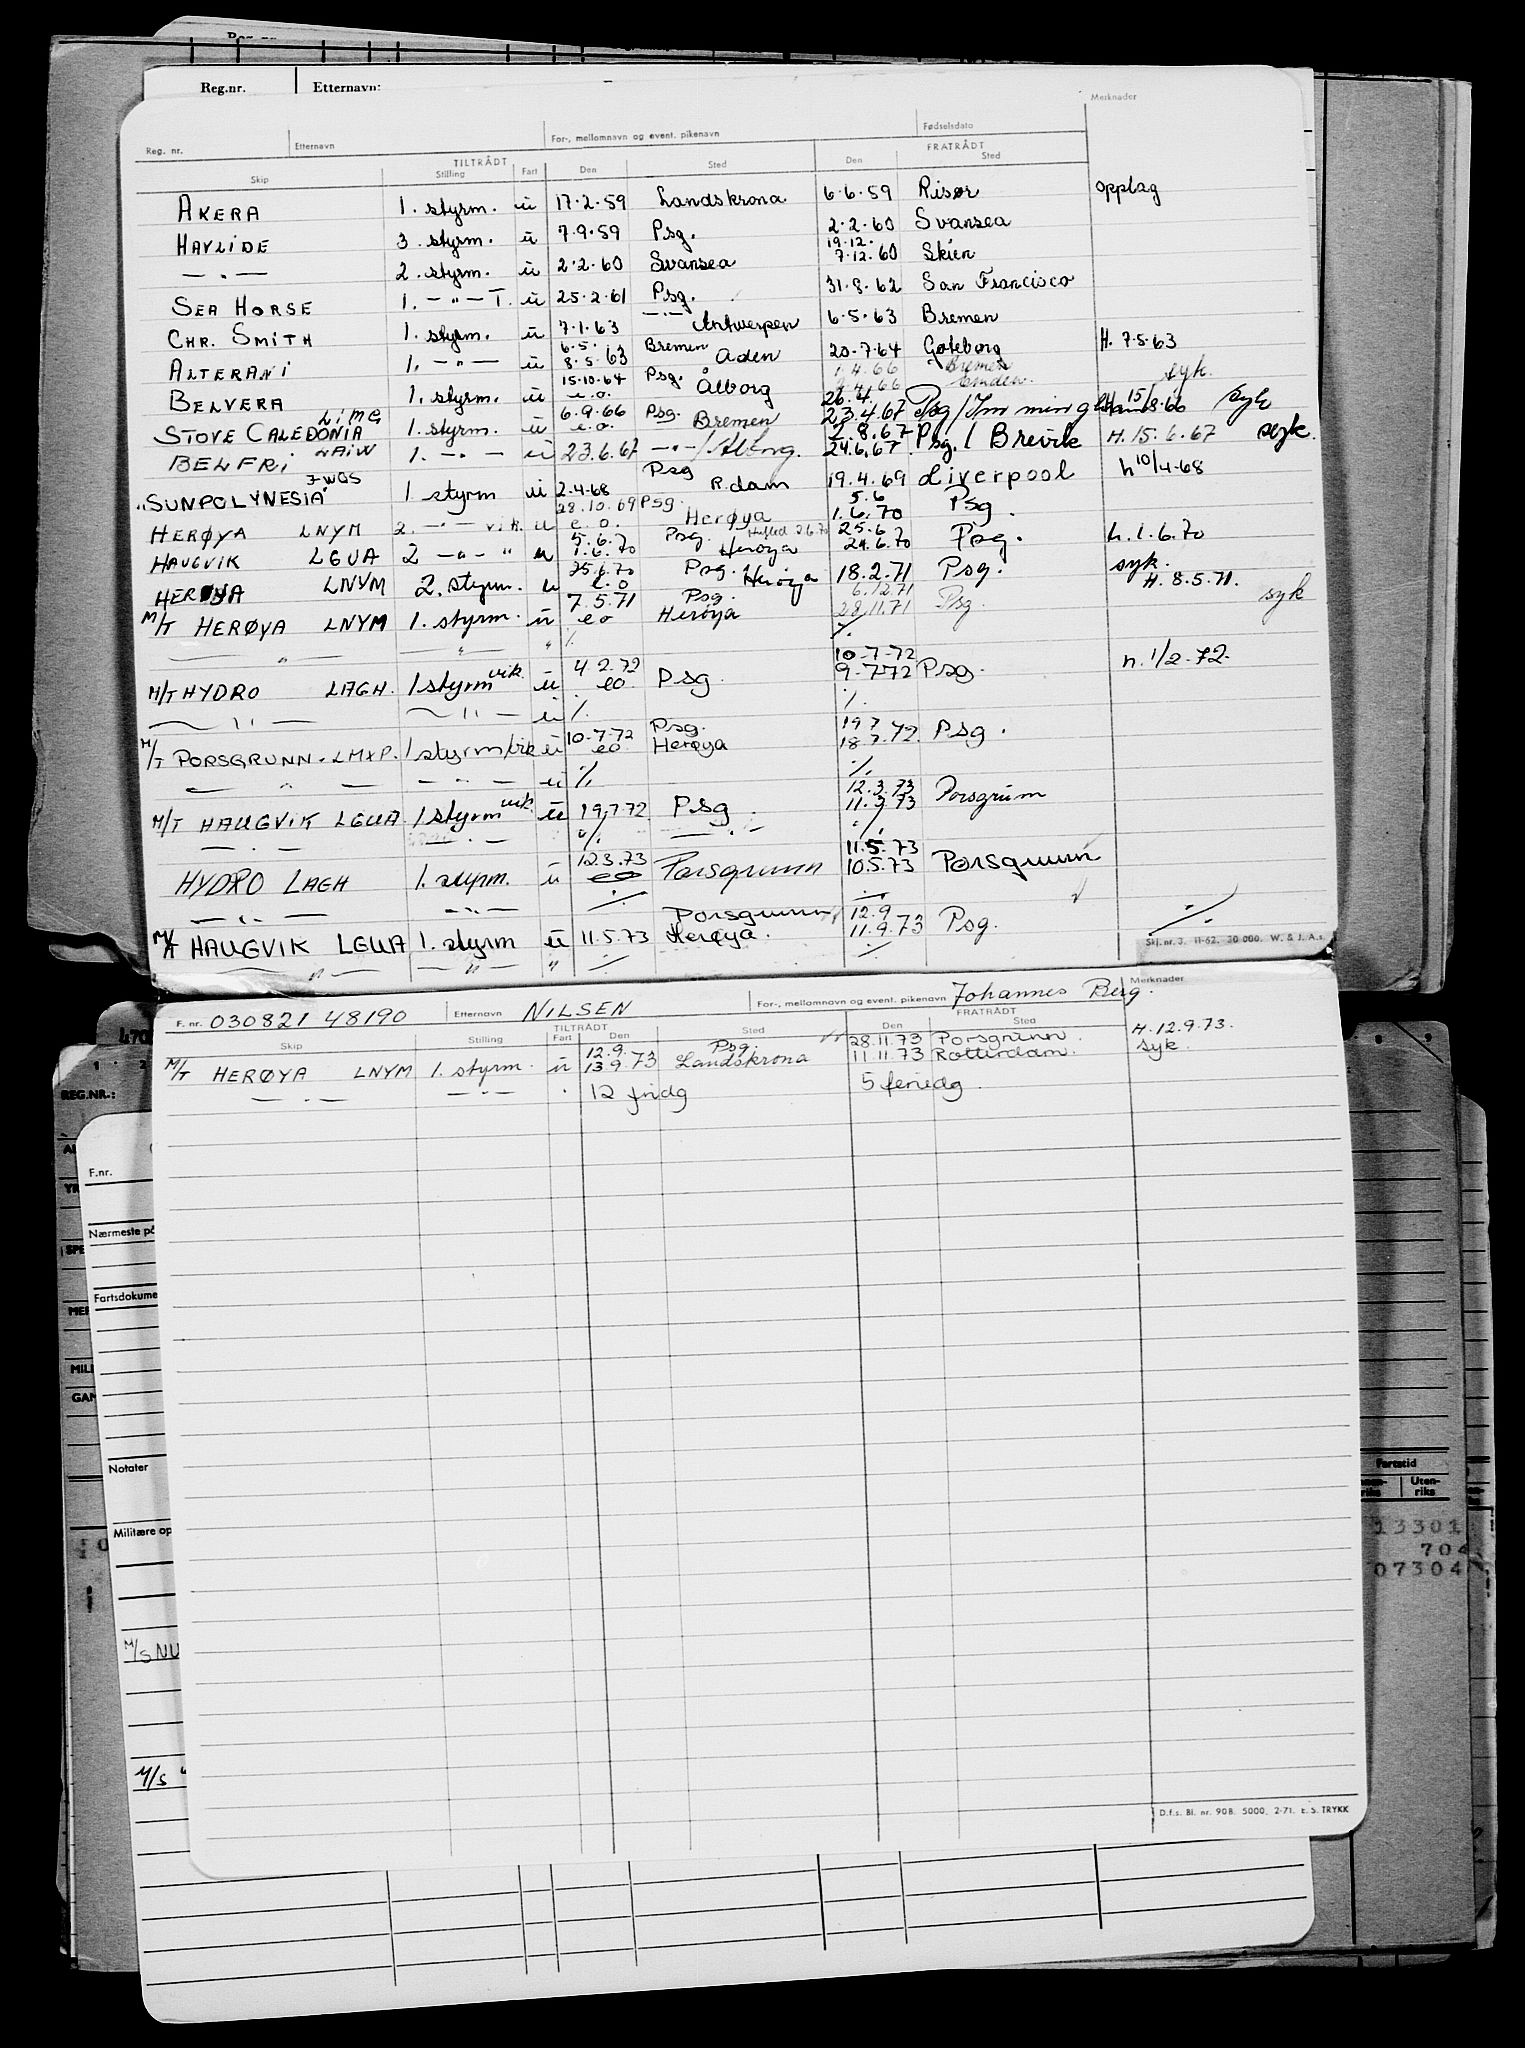 Reg.nr. Etternavn:
Merknader
Reg. nr. Etternavn For-, mellomnavn og event. pikenavn Fødselsdato
TILTRÅDT FRATRÅDT
Skip Stilling Fart Den Sted Den Sted
AKERA 1. styrm. ü 17.2.59 Landskrona 6.6.59 Risør opplag
HAVLIDE 3. styrm. ü 7.9.59 Psg. 2.2.60 Svansea
— " — 2. styrm. ü 2.2.60 Svansea 19.12. 7.12.60 Skien
SEA HORSE 1. — " — T. ü 25.2.61 Psg. 31.8.62 San Francisco
CHR. SMITH 1. styrm. ü 7.1.63 — " — Antwerpen 6.5.63 Bremen
ALTERANI 1. — " — ü 6.5. 8.5.63 Bremen Aden 20.7.64 Gøteborg H. 7.5.63
BELVERA 1. styrm. ü 15.10.64 e.o. Psg. Ålborg 1.4.66 9.4.66 Bremen Emden. syk.
STOVE CALEDONIA LIMG 1. styrm. ü 6.9.66 e.o. Psg. Bremen 26.4. 23.4.67 Psg / Immingham H. 15/8.66 syk
BELFRI LAIW 1. — " — ü 23.6.67 — " — / Ålborg. 2.8.67 24.6.67 Psg. / Brevik H. 15.6.67 syk.
"SUNPOLYNESIA" JWQS 1 styrm ü 2.4.68 Psg R.dam 19.4.69 Liverpool h 10/4-68
HERØYA LNYM 2. — " — vik. ü 28.10.69 e.o. Psg. Herøya 5.6 1.6.70 Psg.
HAUGVIK LGUA 2 — " — " ü 5.6.7 1.6.70 Psg. Herøya 25.6 24.6.70 Psg. h. 1.6.70
HERØYA LNYM 2. styrm. ü 25.6.70 e.o Psg. Herøya 18.2.71 Psg. syk.
M/T HERØYA LNYM 1. styrm. ü 7.5.71 eo Psg. Herøya 6.12.71 28.11.71 Psg. H. 8.5.71. syk
— " — — " — " ./. ./.
M/T HYDRO LAGH. 1 styrm vik. ü 4.2.72 eo. Psg. 10-7-72 9-7-72 Psg. h. 1/2-72.
— " — — " — ü ./. ./.
M/T PORSGRUNN. LMXP. 1 styrm/vik ü 10-7-72 eo Psg. Herøya 19.7 18.7.72. Psg.
— " — — " — ü ./. ./.
M/T HAUGVIK LGUA 1 styrm vik. ü 19.7.72 Psg 12.3.73 11.3.73 Porsgrunn
— " — — " — " ./. — " — ./.
HYDRO LAGH 1. styrm. ü 12.3.73 eo Porsgrunn 11.5.73 10.5.73 Porsgrunn
— " — — " — ./. ./.
M/T HAUGVIK LGUA 1. styrm ü 11.5.73 Porsgrunn Herøya. 12.9 11.9.73 Psg. ./.
— " — — " — " ./. ./.
Skj. nr. 3. 11-62. 30 000. W. & J. A.s.
F. nr. 030821 48190 Etternavn NILSEN For-, mellomnavn og event. pikenavn Johannes Berg. Merknader
TILTRÅDT FRATRÅDT
Skip Stilling Fart Den Sted Den Sted
M/T HERØYA LNYM 1. styrm. ü 12.9. 13.9.73 Psg. Landskrona 28.11.73 11.11.73 Porsgrunn. Rotterdam. H. 12.9.73. syk.
— " — — " — " 12 fridg 5 feriedg.
REG.NR.:
F.nr.
Nærmeste på
Fartsdokume
Notater
Militære op
M/S NU
M/S
Fartstid
Uten-riks
13301
704
07304
D.f.s. Bl. nr. 908. 5000. 2-71. E. S. TRYKK